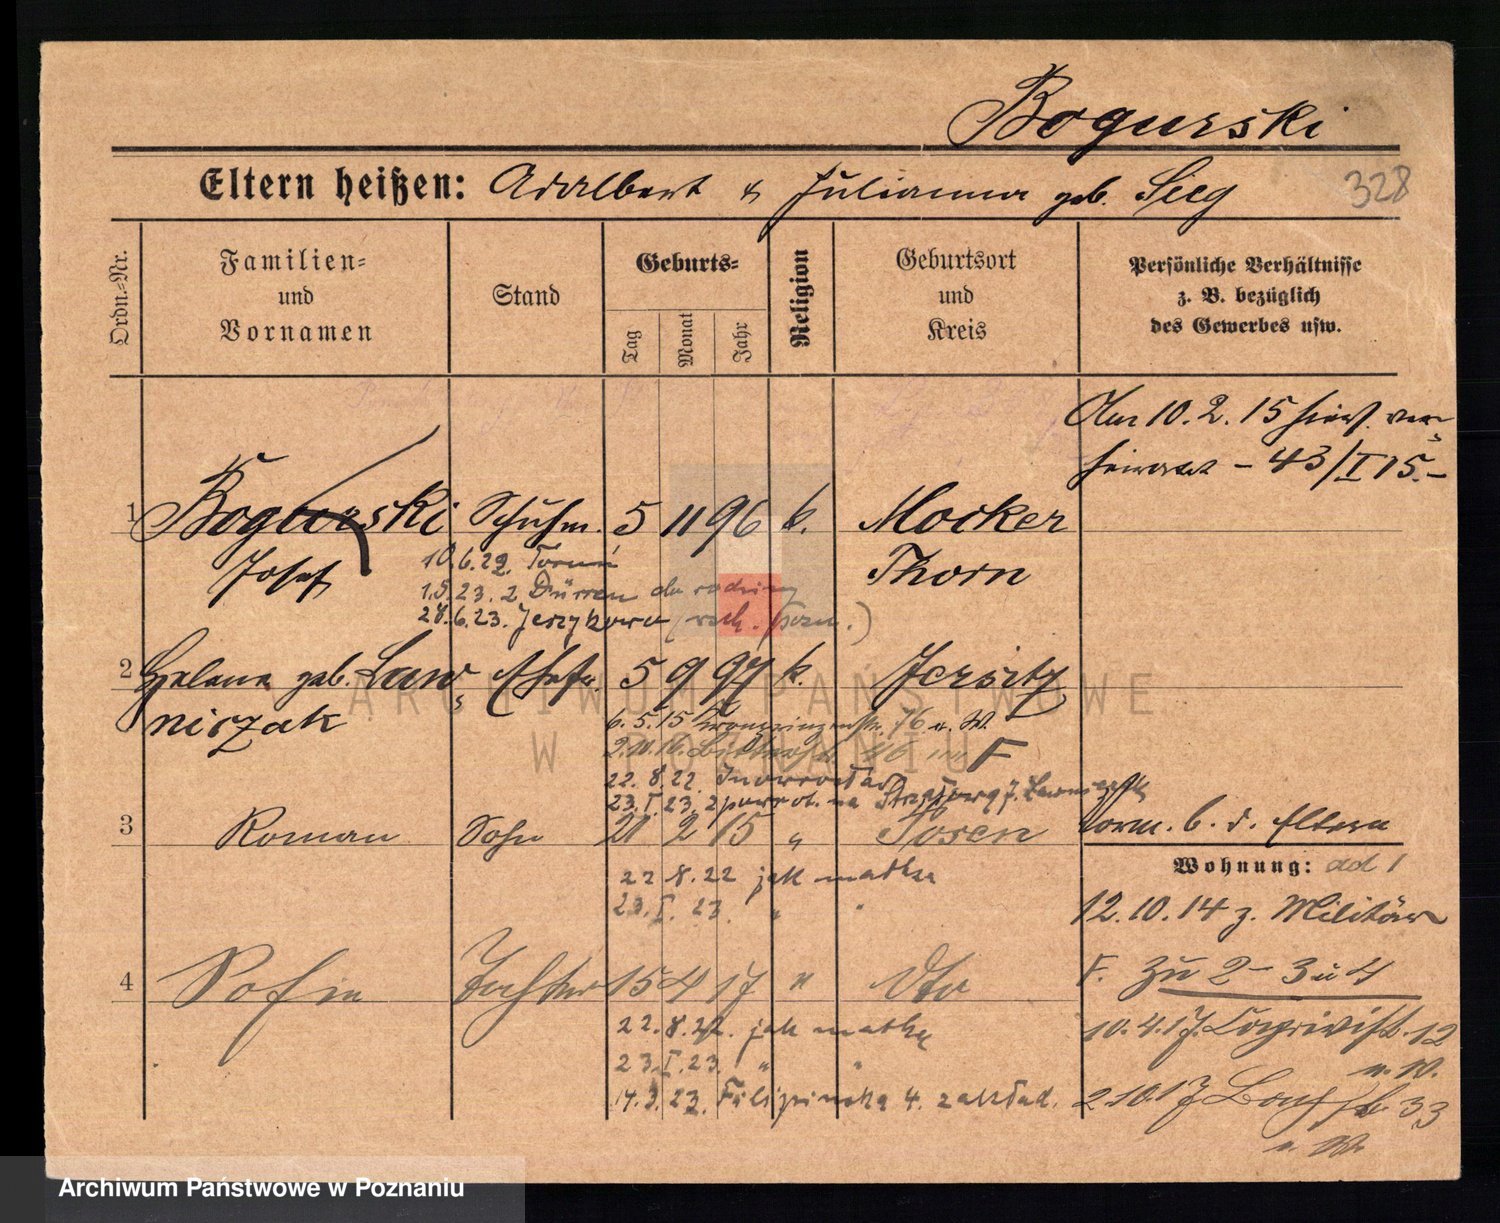 Bogurski
Eltern heißen: Adalbert u Julianna geb. Sieg
328
Ordn.-Nr.
Familien-
und
Vornamen
Stand
Geburts-
Tag
Monat
Jahr
Religion
Geburtsort
und
Kreis
Persönliche Verhältnisse
z. B. bezüglich
des Gewerbes usw.
Am 10.2.15 hies. ver-
heiratet - 43/I 15.-
1 Bogurski Schuhm. 5 11 96 k. Mocker
Josef Thorn
10.6.22. Toruń
1.5.23. z Dürren do rodziny
28.6.23. Jerzykowo
2 Helena geb. Law- Ehefr. 5 9 97 k. Jersitz
niczak
6.5.15 76 b. W.
2.10.16. 46 F
22.8.22. Inowrocław
23.I.23. z powrot. na
3 Roman Sohn 21 2 15 " Posen
Vorm. b. d. Eltern
Wohnung: ad 1
22.8.22 jak matka
23.I.23. " "
12.10.14 z. Militär
4 Sofie Tochter 15 4 17 " dto
F. zu 2 - 3 u 4
22.8.22. jak matka
23.I.23. " "
10.4.17. 12
b. W.
14.3.23. Filipińska 4. zakład.
2.10.17 33
b. W.
ARCHIWUM PAŃSTWOWE
W POZNANIU
Archiwum Państwowe w Poznaniu